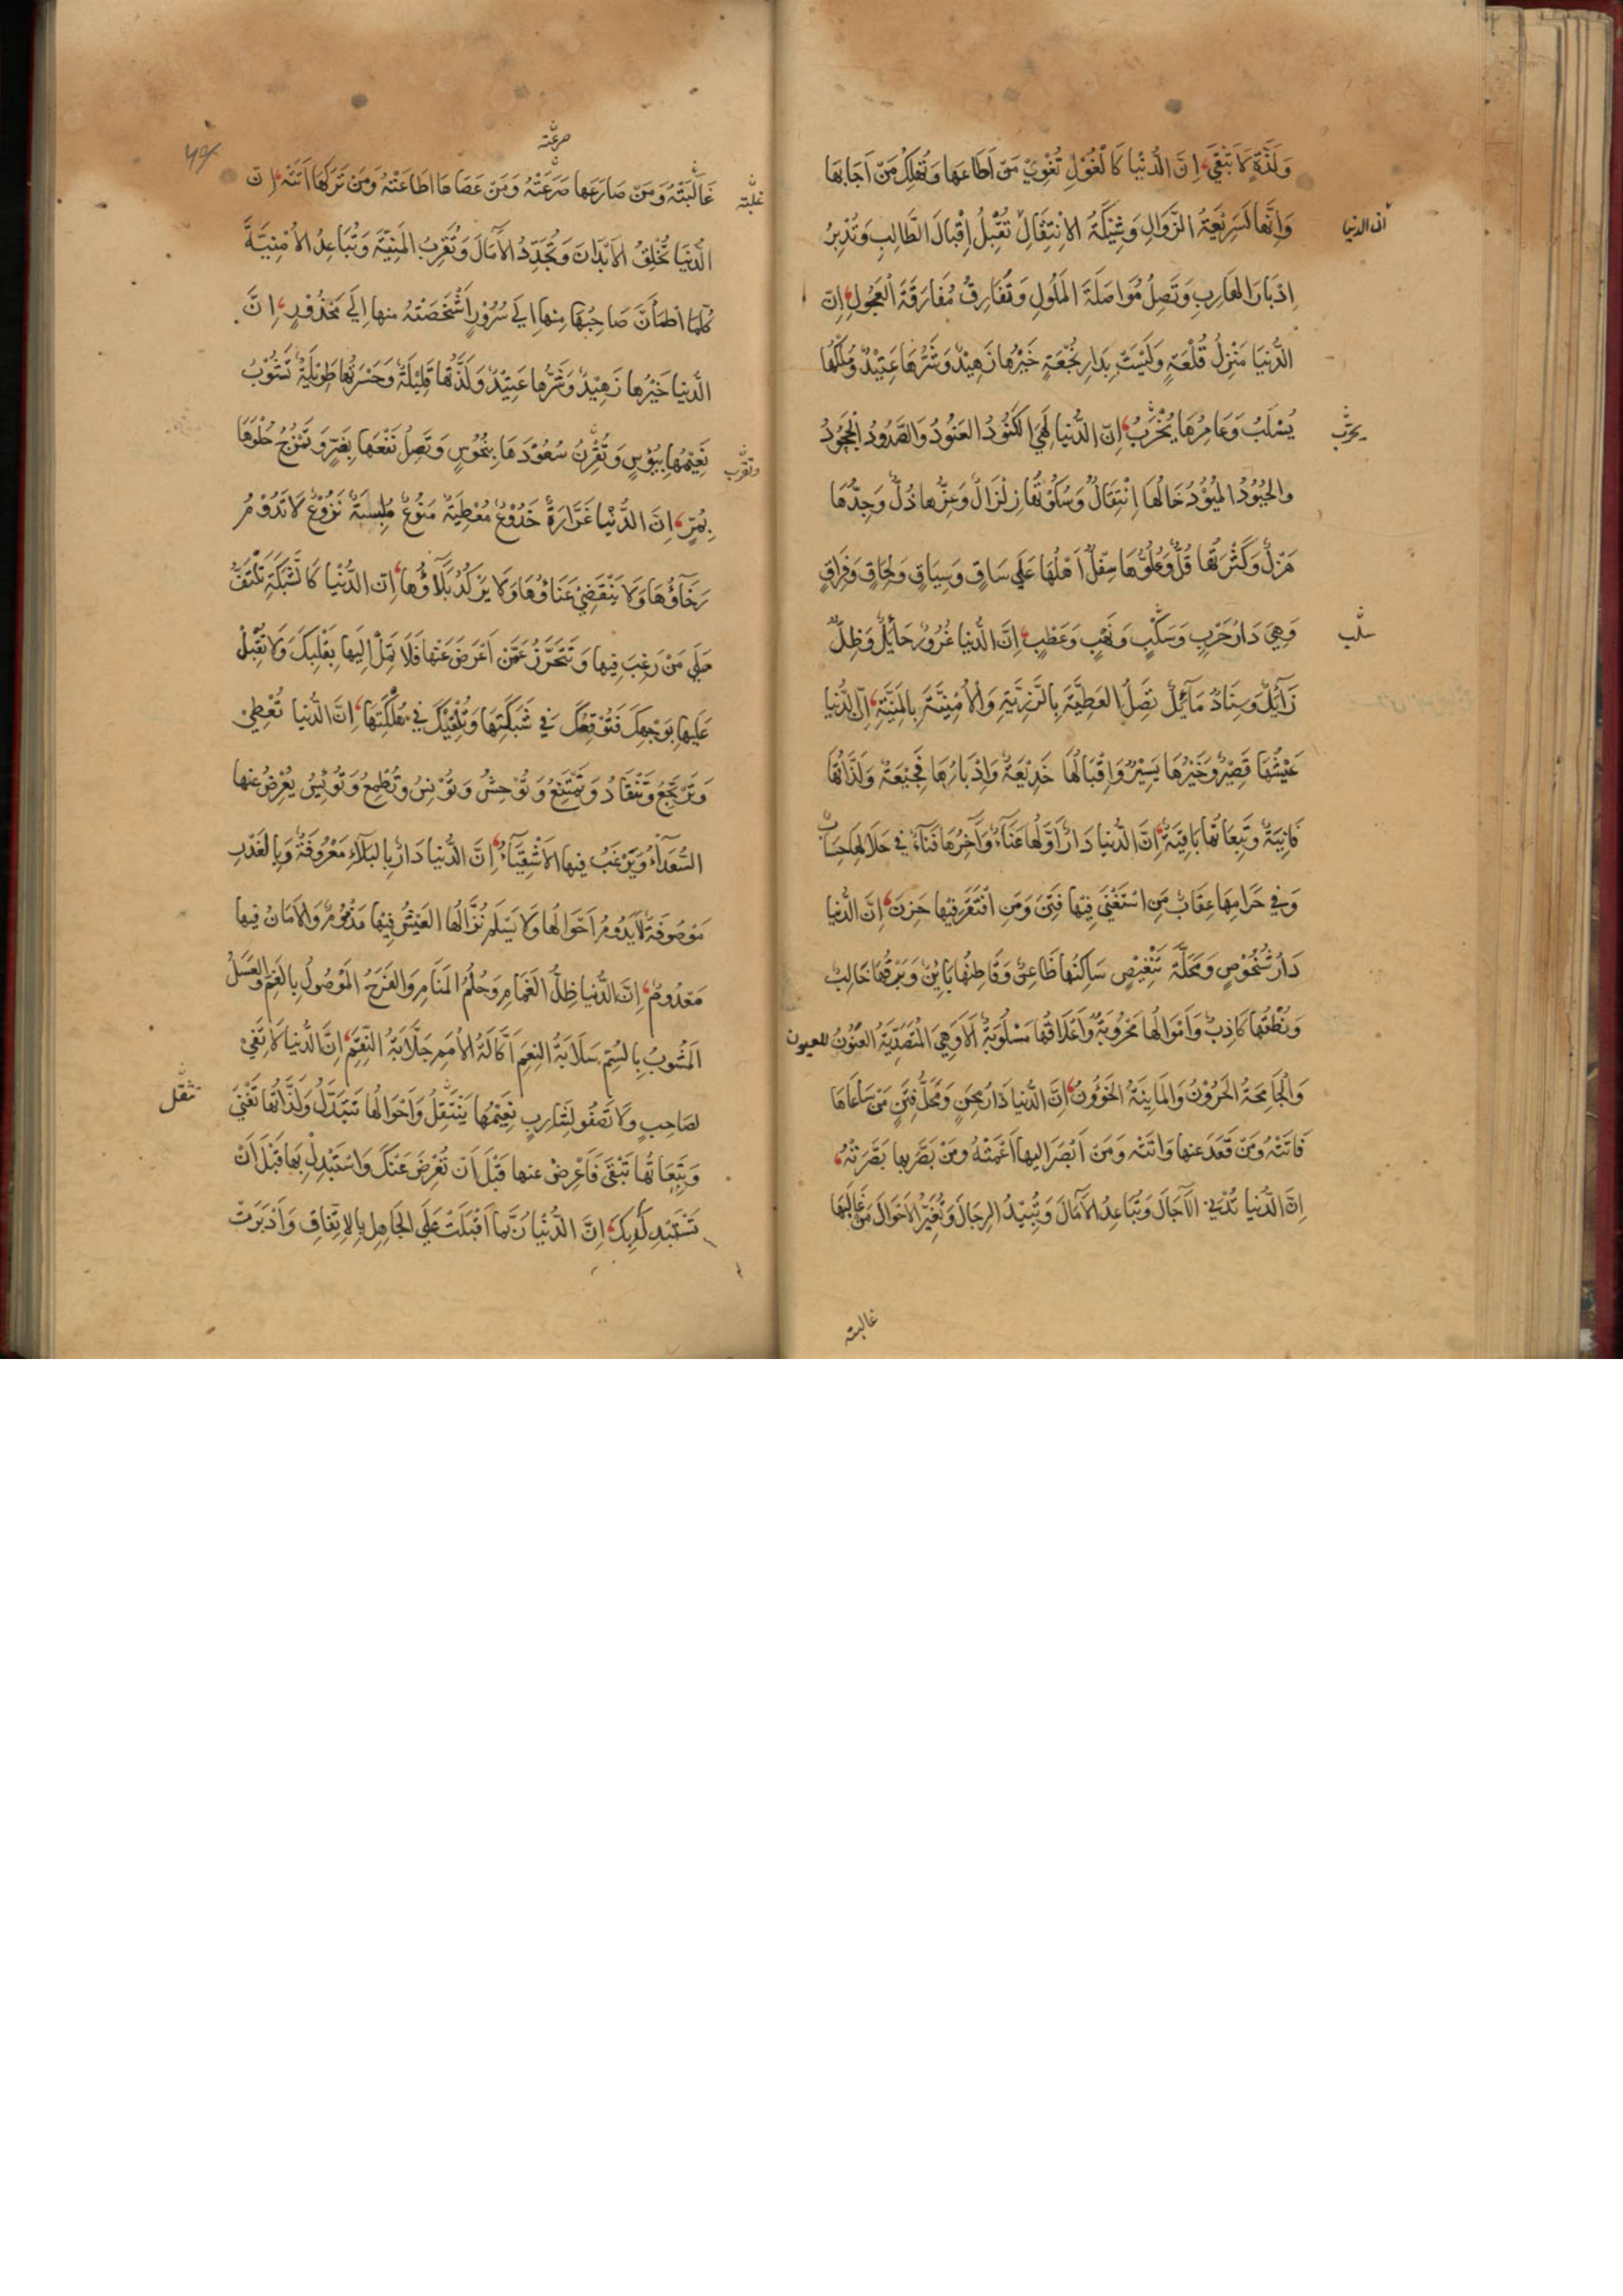 وَلَذَّةٍ لَا تَبْقَى اِنَّ الدُّنْيَا كَالْغُوْلِ تُغْوِيْ مَنْ اَطَاعَهَا وَتُهْلِكُ مَنْ اَجَابَهَا
وَاِنَّهَا لَسَرِيْعَةُ الزَّوَالِ وَشِيْكَةُ الاِنْتِقَالِ تُقْبِلُ اِقْبَالَ الطَّالِبِ وَتُدْبِرُ
ان الدنيا
اِدْبَارَ الهَارِبِ وَتَصِلُ مُوَاصَلَةَ المَلُولِ وَتُفَارِقُ مُفَارَقَةَ العَجُولِ اِنَّ
الدُّنيَا مَنْزِلُ قُلْعَةٍ وَلَيْسَتْ بِدَارِ نُجْعَةٍ خَيْرُهَا زَهِيْدٌ وَشَرُّهَا عَتِيْدٌ وَمُلْكُهَا
يُسْلَبُ وَعَامِرُهَا يُخْرَبُ اِنَّ الدُّنيَا لَهِيَ الكَنُودُ العَنُودُ وَالصَّدُودُ الجَحُودُ
يخرب
والحَيُوْدُ المَيُوْدُ حَالُهَا اِنْتِقَالٌ وَسُكُوْنُهَا زِلْزَالٌ وَعِزُّهَا ذُلٌّ وَجِدُّهَا
هَزْلٌ وَكَثْرَتُهَا قُلٌّ وَعُلُوُّهَا سِفْلٌ اَهْلُهَا عَلَى سَاقٍ وَسِيَاقٍ وَلِحَاقٍ وَفِرَاقٍ
وَهِيَ دَارُ حَرْبٍ وَسَلْبٍ وَنَهْبٍ وَعَطْبٍ اِنَّ الدُّنيَا غُرُوْرٌ حَائِلٌ وَظِلٌّ
سلب
زَآئِلٌ وَسِنَادٌ مَآئِلٌ تَصِلُ العَطِيَّةَ بِالرَّزِيَّةِ وَالاُمْنِيَّةَ بِالمَنِيَّةِ اِنَّ الدُّنيَا
عَيْشُهَا قَصِيْرٌ وَخَيْرُهَا يَسِيْرٌ وَاِقْبَالُهَا خَدِيْعَةٌ وَاِدْبَارُهَا فَجِيْعَةٌ وَلَذَّاتُهَا
فَانِيَةٌ وَتَبِعَاتُهَا بَاقِيَةٌ اِنَّ الدُّنيَا دَارٌ اَوَّلُهَا عَنَآءٌ وَآخِرُهَا فَنَآءٌ فِي حَلَالِهَا حِسَابٌ
وَفِي حَرَامِهَا عِقَابٌ مَنِ اسْتَغْنَى فِيْهَا فُتِنَ وَمَنِ افْتَقَرَ فِيْهَا حَزِنَ اِنَّ الدُّنيَا
دَارُ شُخُوْصٍ وَمَحَلَّةُ تَنْغِيْصٍ سَاكِنُهَا ظَاعِنٌ وَقَاطِنُهَا بَائِنٌ وَبَرْقُهَا خَالِبٌ
وَنُطْقُهَا كَاذِبٌ وَاَمْوَالُهَا مَحْرُوْبَةٌ وَاَعْلَاقُهَا مَسْلُوْبَةٌ اَلَا وَهِيَ المُتَصَدِّيَةُ العَنُوْنُ للعيون
وَالجَامِحَةُ الحَرُوْنُ وَالمَاينَةُ الخَؤُوْنُ اِنَّ الدُّنيَا دَارُ مِحَنٍ وَمَحَلُّ فِتَنٍ مَنْ سَاعَاهَا
فَاتَتْهُ وَمَنْ قَعَدَ عَنهَا وَاتَتْهُ وَمَنْ اَبْصَرَ اِلَيهَا اَعْمَتْهُ وَمَنْ بَصَّرَ بِهَا بَصَّرَتْهُ
اِنَّ الدُّنيَا تُدْنِي الآجَالَ وَتُبَاعِدُ الآمَالَ وَتُبِيْدُ الرِجَالَ وَتُغَيِّرُ الاَحْوَالَ مَنْ غَالَبَهَا
غالبته
صرعته
غَالَبَتْهُ وَمَنْ صَارَعَهَا صَرَعَتْهُ وَمَنْ عَصَاهَا اطَاعَتْهُ وَمَنْ تَرَكَهَا اَتَتْهُ اِنَّ
غلبته
الدُّنيَا تُخْلِقُ الاَبْدَانَ وَتُجَدِّدُ الآمَالَ وَتُقَرِّبُ المَنِيَّةَ وَتُبَاعِدُ الاُمْنِيَّةَ
كُلَّمَا اطْمَأَنَّ صَاحِبُهَا مِنهَا اِلَى سُرُوْرٍ اَشْخَصَتْهُ مِنهَا اِلَى مَحْذُوْرٍ اِنَّ
الدُّنيَا خَيْرُهَا زَهِيْدٌ وَشَرُّهَا عَتِيْدٌ وَلَذَّتُهَا قَلِيْلَةٌ وَحَسْرَتُهَا طَوِيْلَةٌ تَشُوْبُ
نَعِيْمَهَا بِبُؤْسٍ وَتُقْرِنُ سُعُوْدَهَا بِنُحُوْسٍ وَتَصِلُ نَفْعَهَا بِضَرٍّ وَتَمْزُجُ حُلْوَهَا
وتقرب
بِمُرٍّ اِنَّ الدُّنْيَا غَرَّارَةٌ خَدُوْعٌ مُعْطِيَةٌ مَنُوْعٌ مُلْبِسَةٌ نَزُوْعٌ لَا تَدُوْمُ
رَخَآؤُهَا وَلَا يَنْقَضِيْ عَنَاؤُهَا وَلَا يَرْكَدُ بَلَآؤُهَا اِنَّ الدُّنْيَا كَالشَّبَكَةِ تَلْتَفُّ
عَلَى مَنْ رَغِبَ فِيهَا وَتَتَحَرَّزُ عَمَّنْ اَعْرَضَ عَنهَا فَلَا تَمِلْ اِلَيهَا بِقَلْبِكَ وَلَا تُقْبِلْ
عَلَيهَا بِوَجْهِكَ فَتُوْقِعُكَ فِي شَبَكَتِهَا وَتُلْقِيْكَ فِي هَلَكَتِهَا اِنَّ الدُّنيَا تُعْطِيْ
وَتَرْتَجِعُ وَتَنْقَادُ وَتَمْتَنِعُ وَتُوْحِشُ وَتُوْنِسُ وَتُطْمِعُ وَتُوْيِسُ يُعْرِضُ عَنهَا
السُّعَدَآءُ وَيَرْغَبُ فِيهَا الاَشْقِيَآءُ اِنَّ الدُّنيَا دَارٌ بِالبَلَآءِ مَعْرُوْفَةٌ وَبِالغَدْرِ
مَوْصُوْفَةٌ لَا يَدُوْمُ اَحْوَالُهَا وَلَا يَسْلَمُ نُزَّالُهَا العَيْشُ فِيْهَا مَذْمُوْمٌ وَالاَمَانُ فِيهَا
مَعْدُوْمٌ اِنَّ الدُّنيَا ظِلُّ الغَمَامِ وَحُلْمُ المَنَامِ وَالفَرَحُ المَوْصُولُ بِالغَمِّ وَالعَسَلُ
المَشُوبُ بِالسُّمِّ سَلَّابَةُ النِعَمِ اَكَّالَةُ الاُمَمِ جَلَّابَةُ النِّقَمِ اِنَّ الدُّنيَا لَا تَفِيْ
لِصَاحِبٍ وَلَا تَصْفُو لِشَارِبٍ نَعِيْمُهَا يَنْتَقِلُ وَاَحْوَالُهَا تَتَبَدَّلُ وَلَذَّاتُهَا تَفْنَى
تنتقل
وَتَبِعَاتُهَا تَبْقَى فَاَعْرِضْ عَنهَا قَبْلَ اَنْ تُعْرِضَ عَنْكَ وَاسْتَبْدِلْ بِهَا قَبْلَ اَنْ
تَسْتَبْدِلَ بِكَ اِنَّ الدُّنْيَا رُبَّمَا اَقْبَلَتْ عَلَى الجَاهِلِ بِالاِتِّفَاقِ وَاَدْبَرَتْ